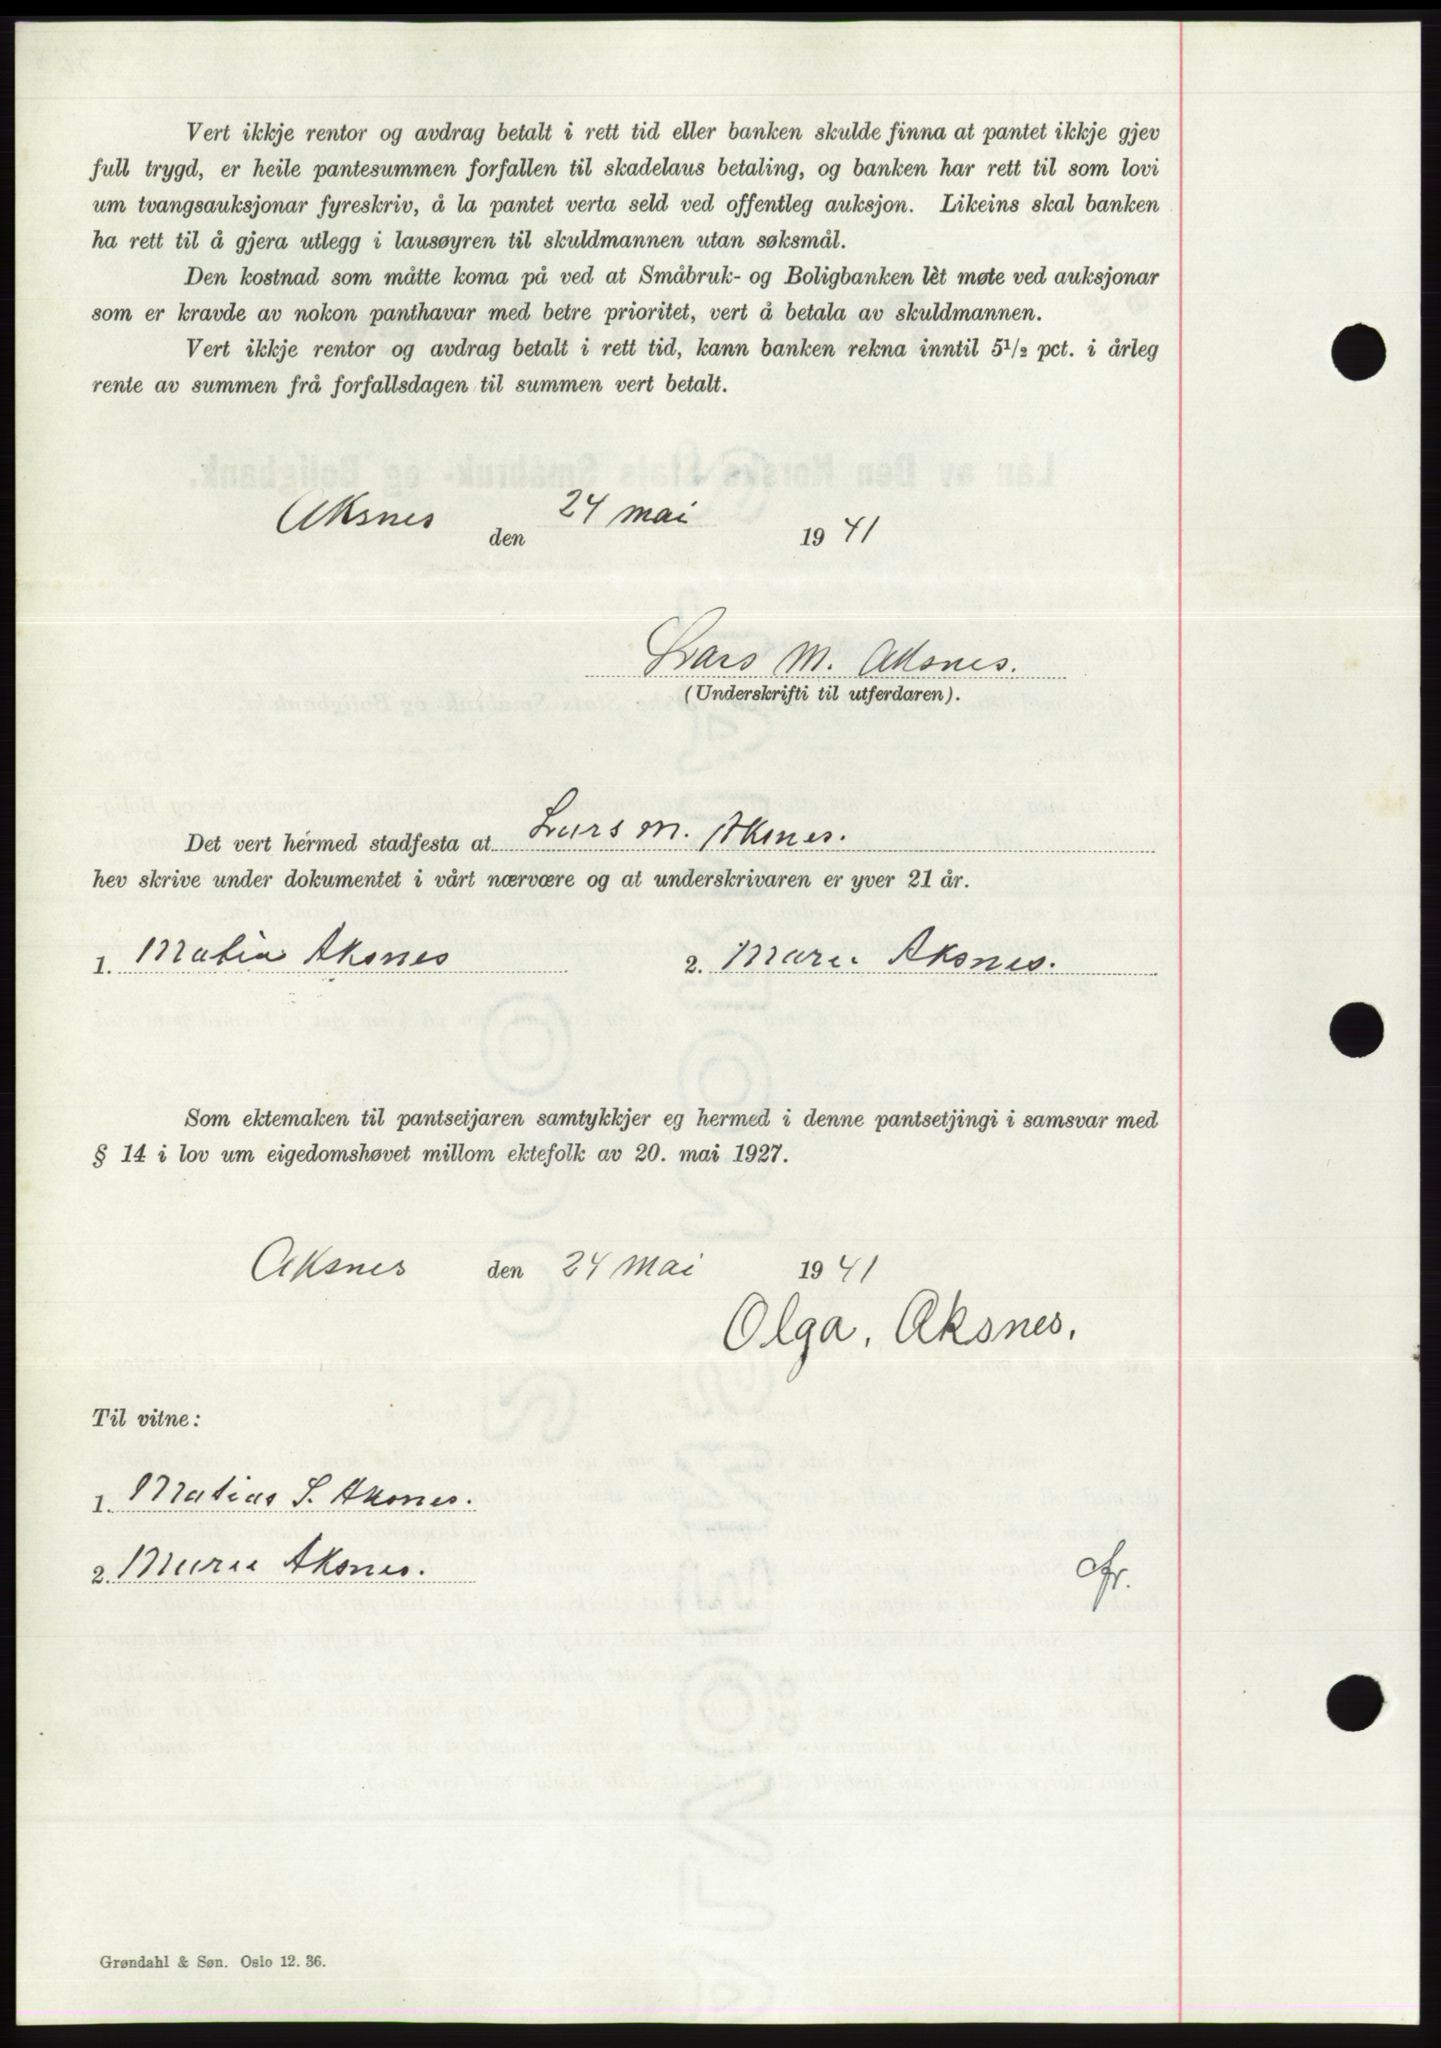 Vert ikkje rentor og avdrag betalt i rett tid eller banken skulde finna at pantet ikkje gjev
full trygd, er heile pantesummen forfallen til skadelaus betaling, og banken har rett til som lovi
um tvangsauksjonar fyreskriv, å la pantet verta seld ved offentleg auksjon. Likeins skal banken
ha rett til å gjera utlegg i lausøyren til skuldmannen utan søksmål.
Den kostnad som måtte koma på ved at Småbruk- og Boligbanken lèt møte ved auksjonar
som er kravde av nokon panthavar med betre prioritet, vert å betala av skuldmannen.
Vert ikkje rentor og avdrag betalt i rett tid, kann banken rekna inntil 5½ pct. i årleg
rente av summen frå forfallsdagen til summen vert betalt.
Aksnes den 24 mai 1941
Lars M. Aksnes.
(Underskrifti til utferdaren).
Det vert hermed stadfesta at Lars M. Aksnes.
hev skrive under dokumentet i vårt nærvære og at underskrivaren er yver 21 år.
1. Matias Aksnes 2. Marie Aksnes.
Som ektemaken til pantsetjaren samtykkjer eg hermed i denne pantsetjingi i samsvar med
§ 14 i lov um eigedomshøvet millom ektefolk av 20. mai 1927.
Aksnes den 24 mai 1941
Olga, Aksnes,
Til vitne:
1. Matias S. Aksnes.
2. Marie Aksnes.
Grøndahl & Søn. Oslo 12. 36.